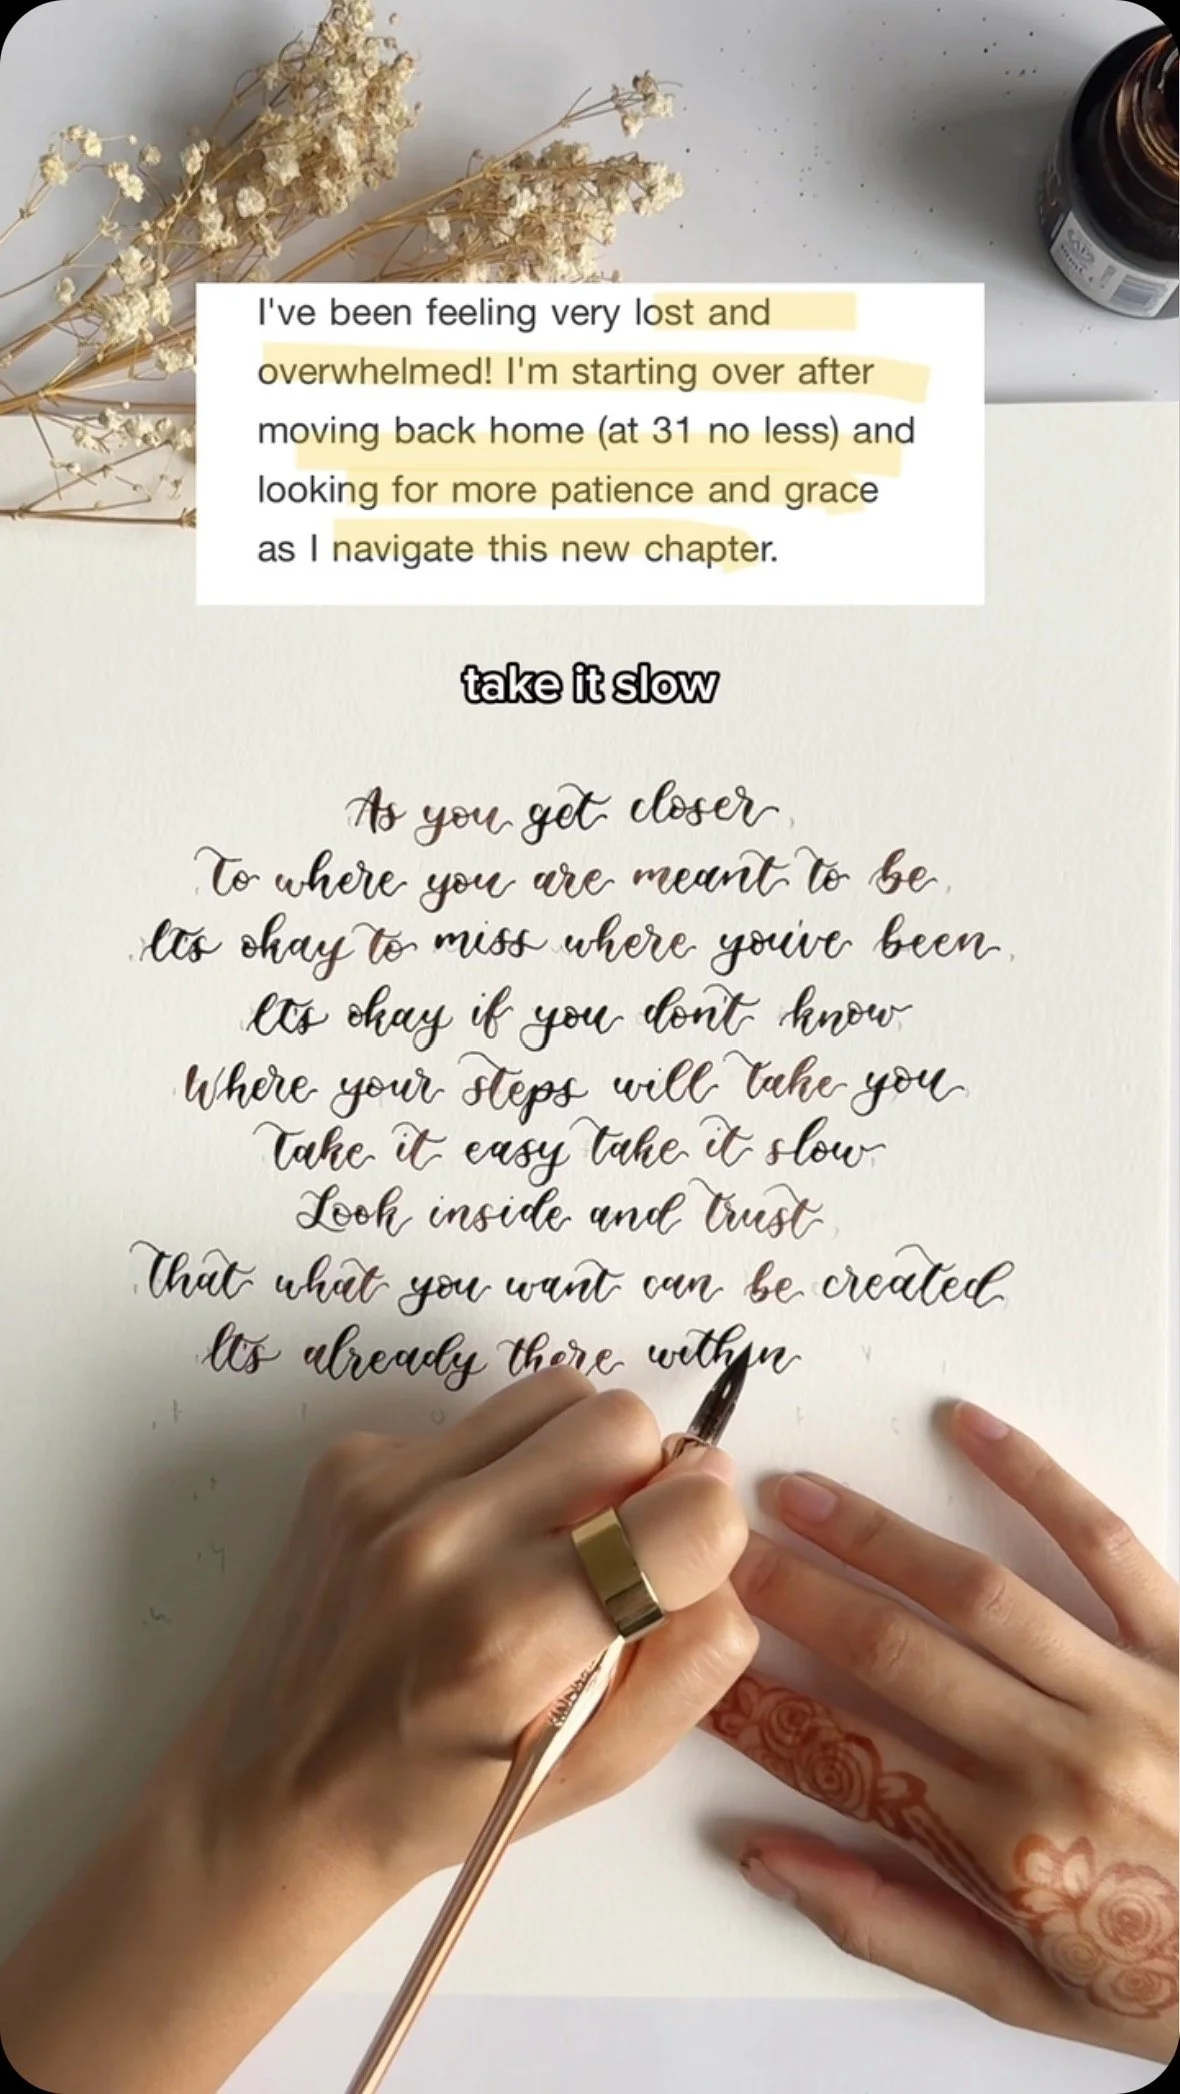 I've been feeling very lost and
overwhelmed! I'm starting over after
moving back home (at 31 no less) and
looking for more patience and grace
as I navigate this new chapter.
take it slow
As you get closer
To where you are meant to be
It's okay to miss where you've been
It's okay if you don't know
Where your steps will take you
Take it easy take it slow
Look inside and trust
That what you want can be created
It's already there within